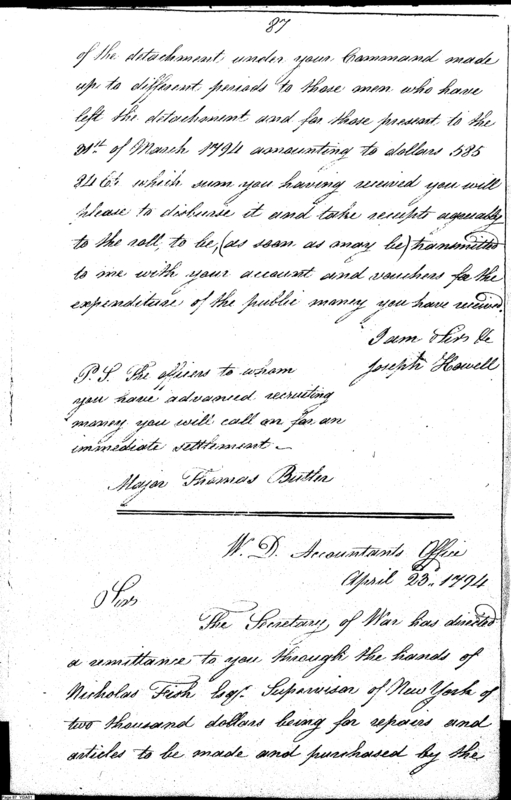 87
of the detachment under your Command made
up to different periods to those men who have
left the detachment and for those present to the
31st of March 1794 amounting to dollars 585
24 6/6 which sum you having received you will
please to disburse it and take receipts agreeably
to the roll, to be, (as soon as may be) transmitted
to me with your account and vouchers for the
expenditure of the public money you have received.
I am Sir &c
Joseph Howell
P.S. The officers to whom
you have advanced recruiting
money you will call on for an
immediate settlement
Major Thomas Butler
W. D. Accountants Office
April 23d. 1794
Sir
The Secretary of War has directed
a remittance to you through the hands of
Nicholas Fish Esqr. Supervisor of New York of
two thousand dollars being for repairs and
articles to be made and purchased by the